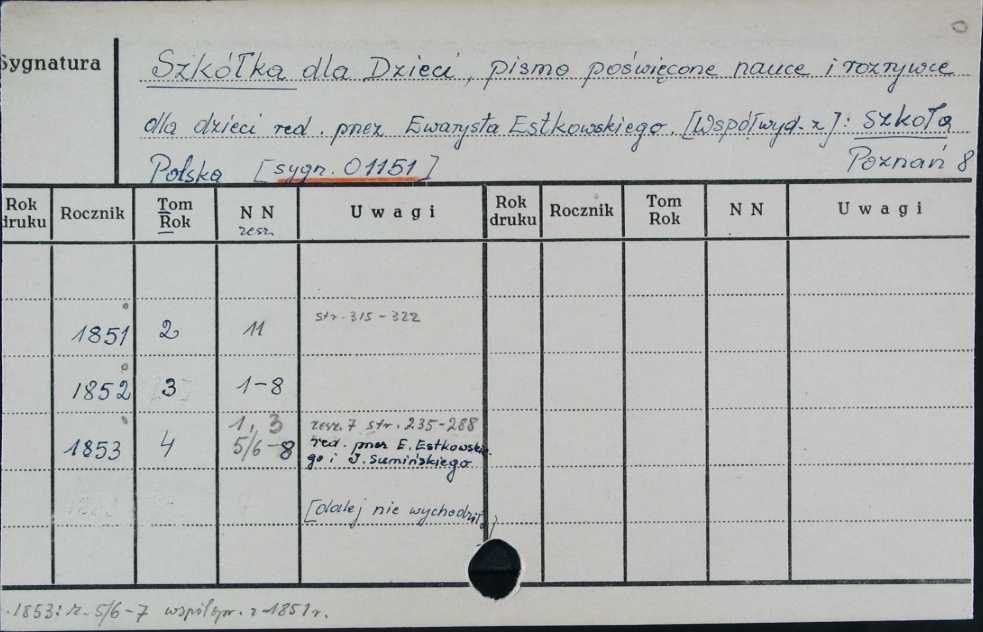 Sygnatura
Szkółka dla Dzieci, pismo poświęcone nauce i rozrywce
dla dzieci red. przez Ewarysta Estkowskiego. [Współwyd. z]: Szkoła
Polska [sygn. 01151] Poznań 8
Rok druku Rocznik Tom Rok N N zesz. Uwagi Rok druku Rocznik Tom Rok N N Uwagi
1851 2 11 str. 315-322
1852 3 1-8
1853 4 1, 3 5/6-8 zesz. 7 str. 235-288
red. przez E. Estkowskie-
go i J. Sumińskiego
[dalej nie wychodziło]
1853: z. 5/6-7 współopr. z 1851 r.